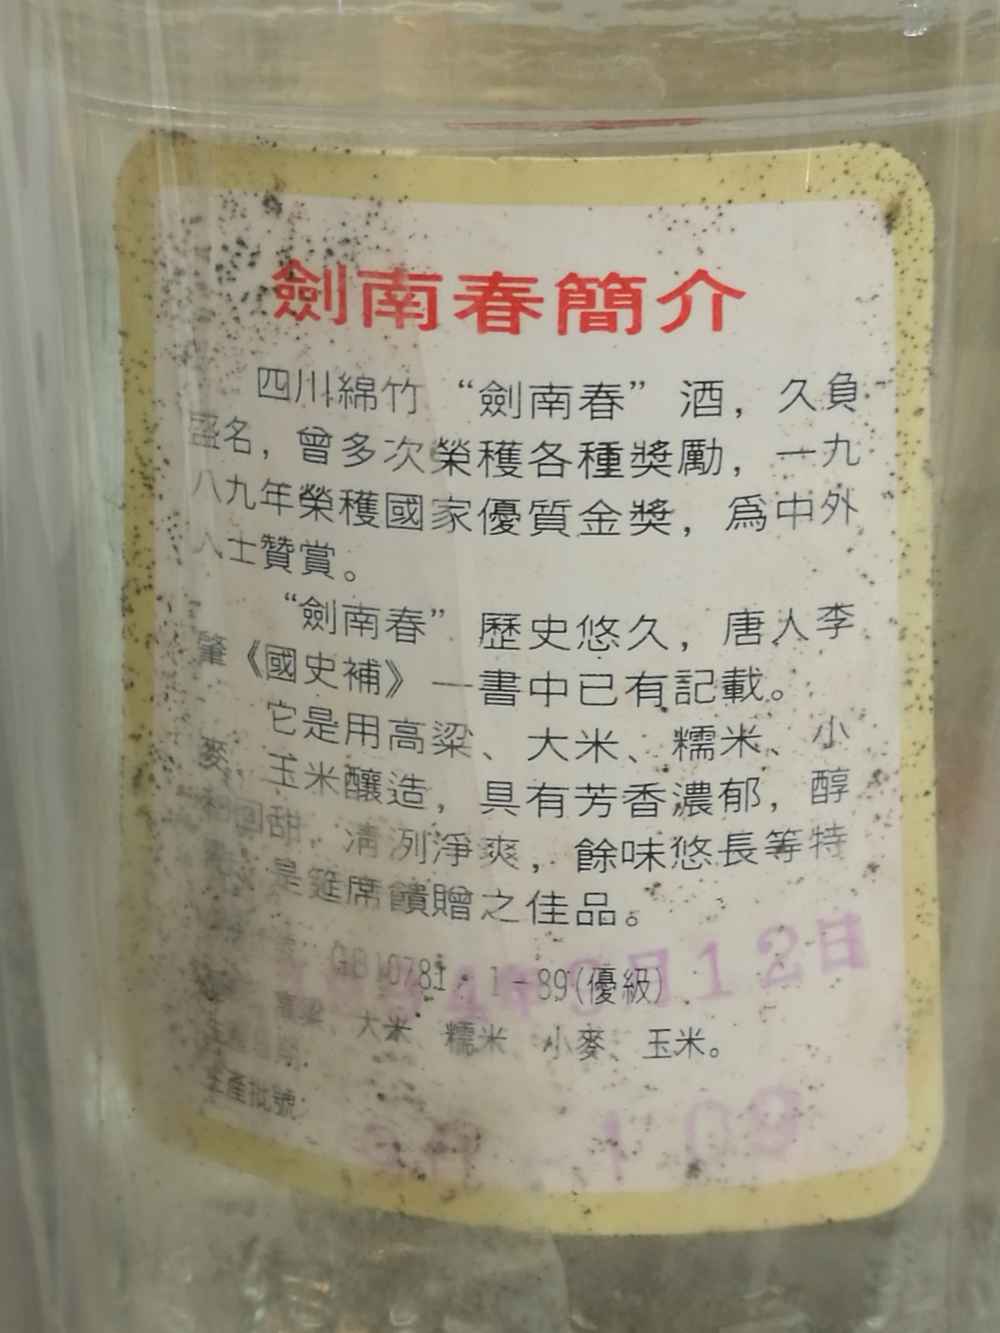 劍南春簡介
四川綿竹“劍南春”酒，久負
盛名，曾多次榮獲各種獎勵，一九
八九年榮獲國家優質金獎，爲中外
人士贊賞。
“劍南春”歷史悠久，唐人李
肇《國史補》一書中已有記載。
它是用高粱、大米、糯米、小
麥、玉米釀造，具有芳香濃郁，醇
和回甜，清洌淨爽，餘味悠長等特
是筵席饋贈之佳品。
GB10781·1-89(優級)
4年3月12日
高粱 大米 糯米 小麥、玉米。
生產批號
109